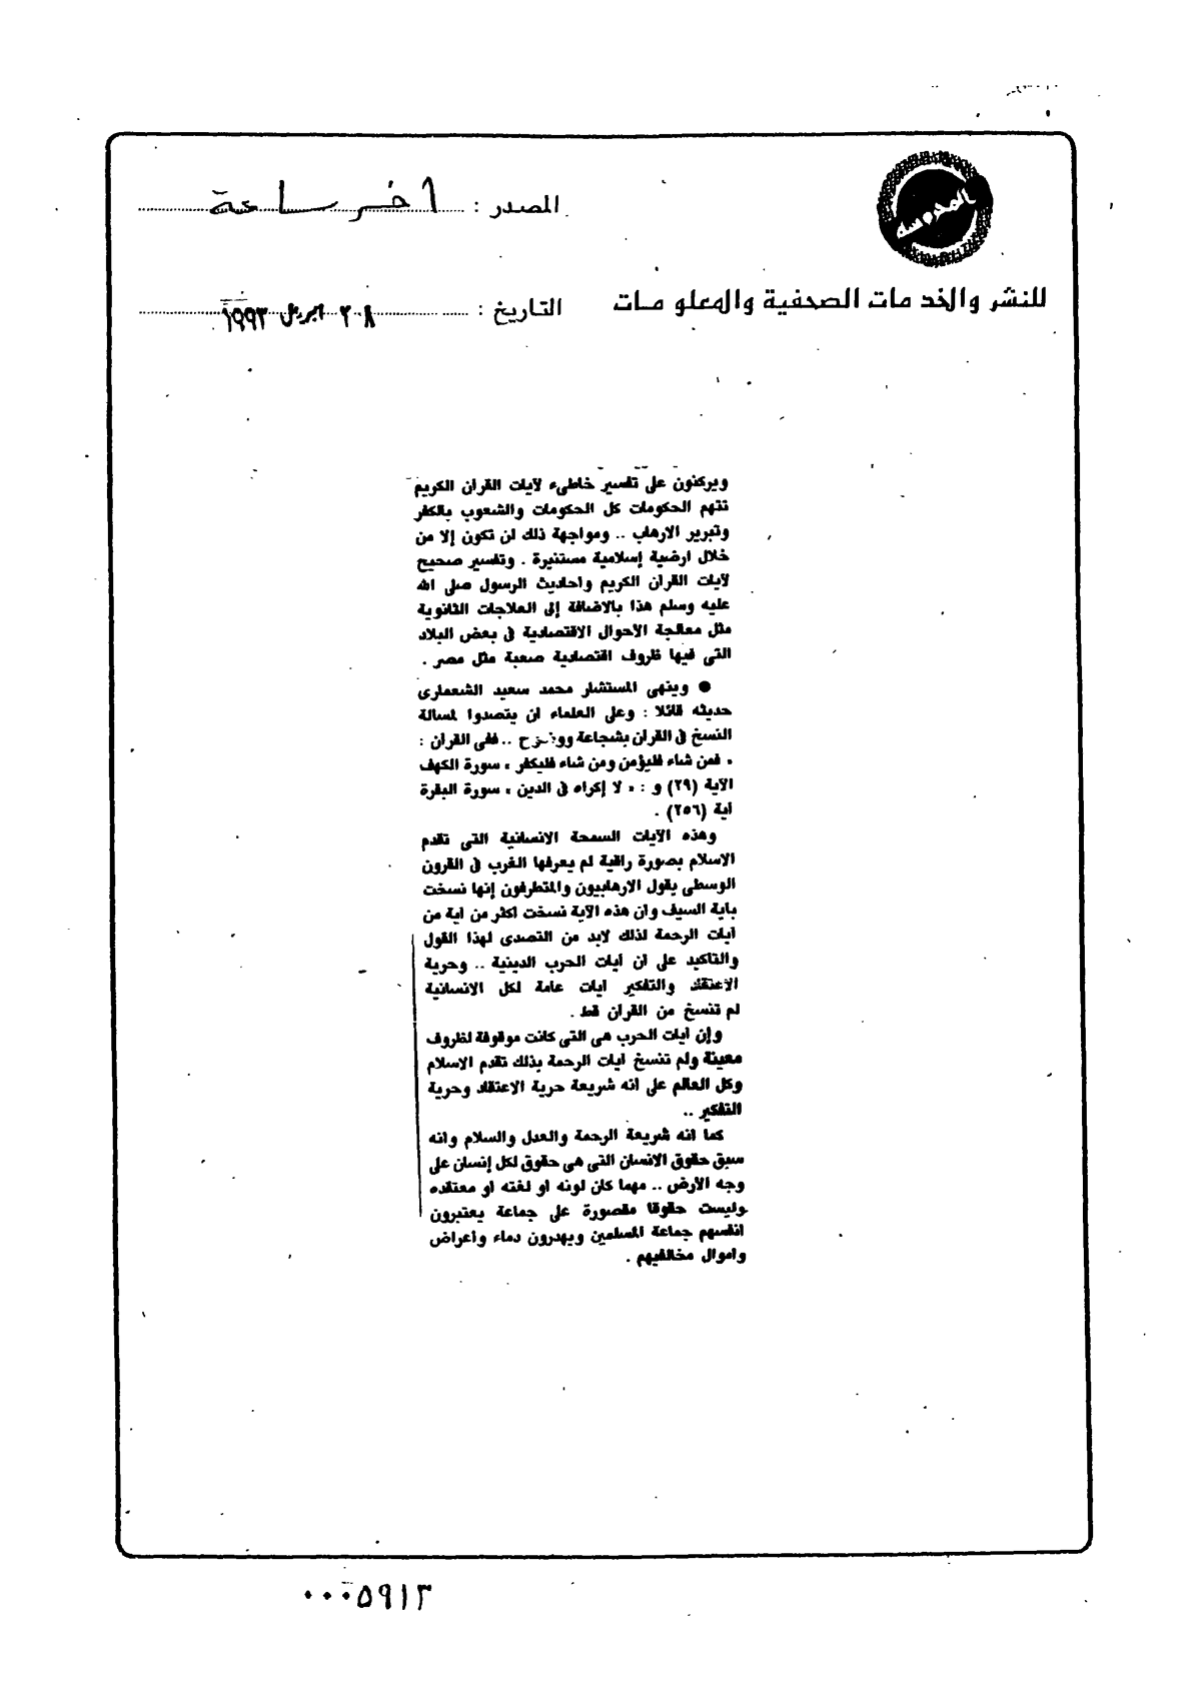 المحروسة
المصدر : اخر ساعة
للنشر والخدمات الصحفية والمعلومات
التاريخ : ٢٨ ابريل ١٩٩٣
ويركنون على تفسير خاطىء لآيات القران الكريم
تتهم الحكومات كل الحكومات والشعوب بالكفر
وتبرير الارهاب .. ومواجهة ذلك لن تكون إلا من
خلال ارضية إسلامية مستنيرة . وتفسير صحيح
لآيات القران الكريم واحاديث الرسول صلى الله
عليه وسلم هذا بالاضافة إلى العلاجات الثانوية
مثل معالجة الأحوال الاقتصادية فى بعض البلاد
التى فيها ظروف اقتصادية صعبة مثل مصر .
● وينهى المستشار محمد سعيد الشعمارى
حديثه قائلا : وعلى العلماء ان يتصدوا لمسالة
النسخ فى القران بشجاعة .. ففى القران :
« فمن شاء فليؤمن ومن شاء فليكفر » سورة الكهف
الآية (٢٩) و : « لا إكراه فى الدين » سورة البقرة
اية (٢٥٦) .
وهذه الآيات السمحة الانسانية التى تقدم
الاسلام بصورة راقية لم يعرفها الغرب فى القرون
الوسطى يقول الارهابيون والمتطرفون إنها نسخت
باية السيف وان هذه الآية نسخت اكثر من اية من
ايات الرحمة لذلك لابد من التصدى لهذا القول
والتاكيد على ان ايات الحرب الدينية .. وحرية
الاعتقاد والتفكير ايات عامة لكل الانسانية
لم تنسخ من القران قط .
وإن ايات الحرب هى التى كانت موقوفة لظروف
معينة ولم تنسخ ايات الرحمة بذلك تقدم الاسلام
وكل العالم على انه شريعة حرية الاعتقاد وحرية
التفكير ..
كما انه شريعة الرحمة والعدل والسلام وانه
سبق حقوق الانسان التى هى حقوق لكل إنسان على
وجه الأرض .. مهما كان لونه او لغته او معتقده
وليست حقوقا مقصورة على جماعة يعتبرون
انفسهم جماعة المسلمين ويهدرون دماء واعراض
واموال مخالفيهم .
٠٠٠٥٩١٣